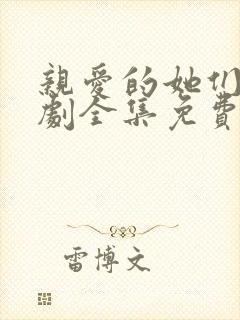 親愛的她们
劇全集免費
雷博文